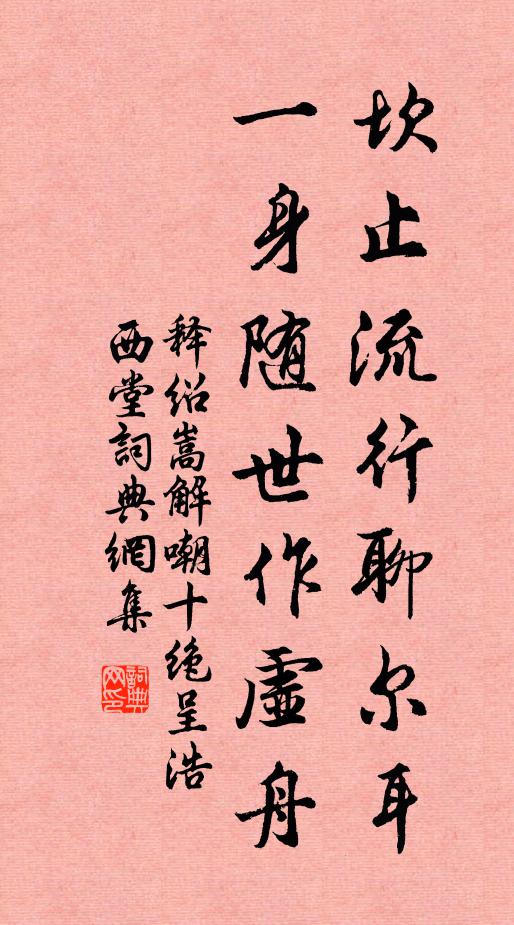 坎止流行聊尔耳
一身随世作虚舟
释绍嵩解嘲十绝呈浩
西堂詞典網集
詞典
网印